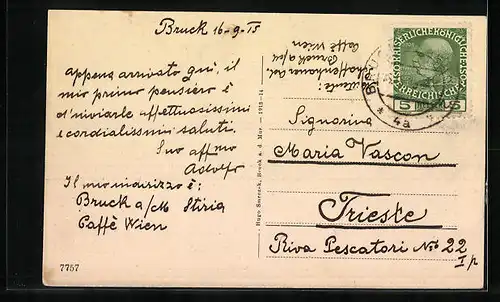 Bruck 16-9-15
appena arrivato quì, il
mio primo pensiero è
d'inviarle affettuosissimi
e cordialissimi saluti.
Suo affmo
Adolfo
Il mio indirizzo è:
Bruck a/M Stiria
Caffè Wien
7757
Hugo Smreczek, Bruck a. d. Mur. – 1913-14
Mittente:
Bruck a/M
Caffè Wien
5 5
* 4a *
Signorina
Maria Vascon
Trieste
Riva Pescatori No 22
I p